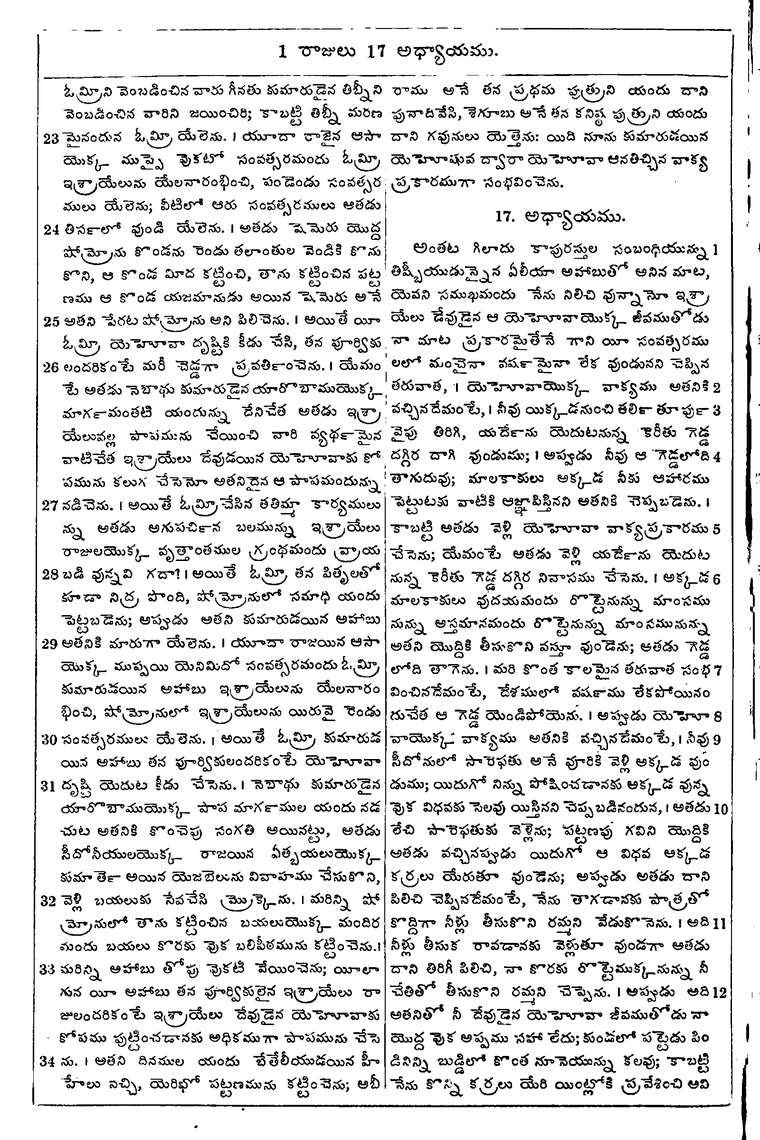 1 రాజులు 17 అధ్యాయము.
ఓమ్రీని వెంబడించిన వారు గీనతు కుమారుడైన తిబ్నీని
వెంబడించిన వారిని జయించిరి; కాబట్టి తిబ్నీ మరణ
23 మైనందున ఓమ్రీ యేలెను. । యూదా రాజైన ఆసా
యొక్క ముప్పై వొకటో సంవత్సరమందు ఓమ్రీ
ఇశ్రాయేలును యేలనారంభించి, పండెండు సంవత్సర
ములు యేలెను; వీటిలో ఆరు సంవత్సరములు ఆతడు
24 తిర్సాలో వుండి యేలెను. । అతడు షెమెరు యొద్ద
షోమ్రోను కొండను రెండు తలాంతుల వెండికి కొను
కొని, ఆ కొండ మీద కట్టించి, తాను కట్టించిన పట్ట
ణము ఆ కొండ యజమానుడు అయిన షెమెరు అనే
25 అతని పేరట షోమ్రోను అని పిలిచెను. । అయితే యీ
ఓమ్రీ యెహోవా దృష్టికి కీడు చేసి, తన పూర్వికు
26 లందరికంటే మరీ చెడ్డగా ప్రవర్తించెను. । యేమం
టే అతడు నెబాథు కుమారుడైన యారొబాముయొక్క
మార్గమంతటి యందున్ను దేనిచేత అతడు ఇశ్రా
యేలువల్ల పాపమును చేయించి వారి వ్యర్థమైన
వాటిచేత ఇశ్రాయేలు దేవుడయిన యెహోవాకు కో
పమును కలుగ చేసెనో అతనిదైన ఆ పాపమందున్ను
27 నడిచెను. । అయితే ఓమ్రీ చేసిన తతిమ్మా కార్యములు
న్ను అతడు అగుపర్చిన బలమున్ను ఇశ్రాయేలు
రాజులయొక్క వృత్తాంతముల గ్రంథమందు వ్రాయ
28 బడి వున్నవి గదా! । అయితే ఓమ్రీ తన పితృలతో
కూడా నిద్ర పొంది, షోమ్రోనులో సమాధి యందు
పెట్టబడెను; అప్పుడు అతని కుమారుడయిన అహాబు
29 అతనికి మారుగా యేలెను. । యూదా రాజయిన ఆసా
యొక్క ముప్పయి యెనిమిదో సంవత్సరమందు ఓమ్రీ
కుమారుడయిన అహాబు ఇశ్రాయేలును యేలనారం
భించి, షోమ్రోనులో ఇశ్రాయేలును యిరువై రెండు
30 సంవత్సరములు యేలెను. । అయితే ఓమ్రీ కుమారుడ
యిన అహాబు తన పూర్వికులందరికంటే యెహోవా
31 దృష్టి యెదుట కీడు చేసెను. । నెబాథు కుమారుడైన
యారొబాముయొక్క పాప మార్గముల యందు నడ
చుట అతనికి కొంచెపు సంగతి అయినట్టు, అతడు
సీదోనీయులయొక్క రాజయిన ఏత్బయలుయొక్క
కుమార్తె అయిన యెజబెలును వివాహము చేసుకొని,
32 వెళ్లి బయలుకు సేవచేసి మ్రొక్కెను. । మరిన్ని షో
మ్రోనులో తాను కట్టించిన బయలుయొక్క మందిర
మందు బయలు కొరకు వొక బలిపీఠమును కట్టించెను.।
33 మరిన్ని అహాబు తోపు వొకటి వేయించెను; యీలా
గున యీ అహాబు తన పూర్వికులైన ఇశ్రాయేలు రా
జులందరికంటే ఇశ్రాయేలు దేవుడైన యెహోవాకు
కోపము పుట్టించడానకు అధికముగా పాపమును చేసె
34 ను. । అతని దినముల యందు బేతేలీయుడయిన హీ
హేలు నచ్చి, యెరిఖో పట్టణమును కట్టించెను; అబీ
రాము అనే తన ప్రథమ పుత్రుని యందు దాని
పునాదివేసి, శెగూబు అనే తన కనిష్ఠ పుత్రుని యందు
దాని గవునులు యెత్తెను: యిది నూను కుమారుడయిన
యెహోషువ ద్వారా యెహోవా ఆనతిచ్చిన వాక్య
ప్రకారముగా సంభవించెను.
17. అధ్యాయము.
అంతట గిలాదు కాపురస్తుల సంబంధియున్ను 1
తిష్బీయుడున్నైన ఏలీయా అహాబుతో అనిన మాట,
యెవని సముఖమందు నేను నిలిచి వున్నానో ఇశ్రా
యేలు దేవుడైన ఆ యెహోవాయొక్క జీవముతోడు
నా మాట ప్రకారమైతేనే గాని యీ సంవత్సరము
లలో మంచైనా వర్షమైనా లేక వుండునని చెప్పిన
తరువాత, । యెహోవాయొక్క వాక్యము అతనికి 2
వచ్చినదేమంటే, । నీవు యిక్కడనుంచి తర్లి తూర్పు 3
వైపు తిరిగి, యర్దెను యెదుటనున్న కెరీతు గెడ్డ
దగ్గిర దాగి వుండుము; । అప్పుడు నీవు ఆ గెడ్డలోది 4
తాగుదువు; మాలకాకులు అక్కడ నీకు ఆహారము
పెట్టుటకు వాటికి ఆజ్ఞాపిస్తినని అతనికి చెప్పబడెను. ।
కాబట్టి అతడు వెళ్లి యెహోవా వాక్యప్రకారము 5
చేసెను; యేమంటే అతడు వెళ్లి యర్దెను యెదుట
నున్న కెరీతు గెడ్డ దగ్గిర నివాసము చేసెను. । అక్కడ 6
మాలకాకులు వుదయమందు రొట్టెనున్ను మాంసము
నున్ను అస్తమానమందు రొట్టెనున్ను మాంసమునున్ను
అతని యొద్దికి తీసుకొని వస్తూ వుండెను; అతడు గెడ్డ
లోది తాగెను. । మరి కొంత కాలమైన తరువాత సంభ 7
వించినదేమంటే, దేశములో వర్షము లేకపోయినం
దుచేత ఆ గెడ్డ యెండిపోయెను. । అప్పుడు యెహో 8
వాయొక్క వాక్యము అతనికి వచ్చినదేమంటే, । నీవు 9
సీదోనులో సారెఫతు అనే వూరికి వెళ్లి అక్కడ వుం
డుము; యిదుగో నిన్ను పోషించడానకు అక్కడ వున్న
వొక విధవకు సెలవు యిస్తినని చెప్పబడినందున, । అతడు 10
లేచి సారెఫతుకు వెళ్లెను; పట్టణపు గవిని యొద్దికి
అతడు వచ్చినప్పుడు యిదుగో ఆ విధవ అక్కడ
కర్రలు యేరుతూ వుండెను; అప్పుడు అతడు దాని
పిలిచి చెప్పినదేమంటే, నేను తాగడానకు పాత్రతో
కొద్దిగా నీళ్లు తీసుకొని రమ్మని వేడుకొనెను. । అది 11
నీళ్లు తీసుక రావడానకు వెళ్లుతూ వుండగా అతడు
దాని తిరిగీ పిలిచి, నా కొరకు రొట్టెముక్కనున్ను నీ
చేతితో తీసుకొని రమ్మని చెప్పెను. । అప్పుడు అది 12
అతనితో నీ దేవుడైన యెహోవా జీవముతోడు నా
యొద్ద వొక అప్పము సహా లేదు; కుండలో పట్టెడు పిం
డినిన్ని బుడ్డిలో కొంత నూనెయున్ను కలవు; కాబట్టి
నేను కొన్ని కర్రలు యేరి యింట్లోకి ప్రవేశించి అవి